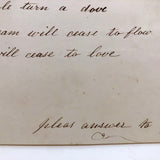 turn a dove
will cease to flow
will cease to love
answer to